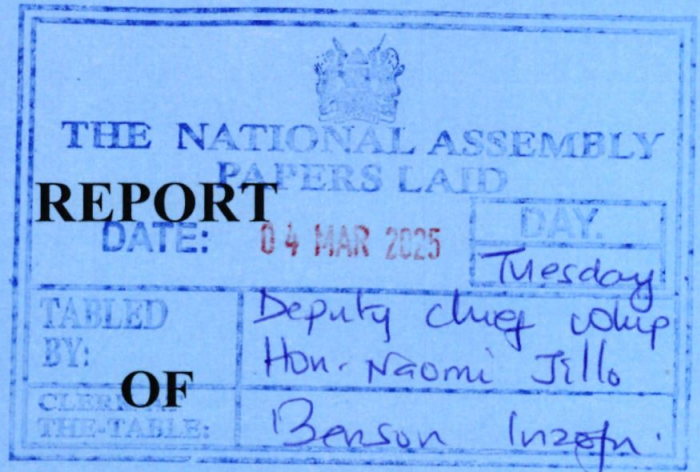 THE NATIONAL ASSEMBLY
PAPERS LAID
REPORT
DATE: 04 MAR 2025
DAY.
Tuesday
TABLED BY:
Deputy chief whip
Hon. Naomi Jillo
OF
CLERK AT THE-TABLE:
Benson